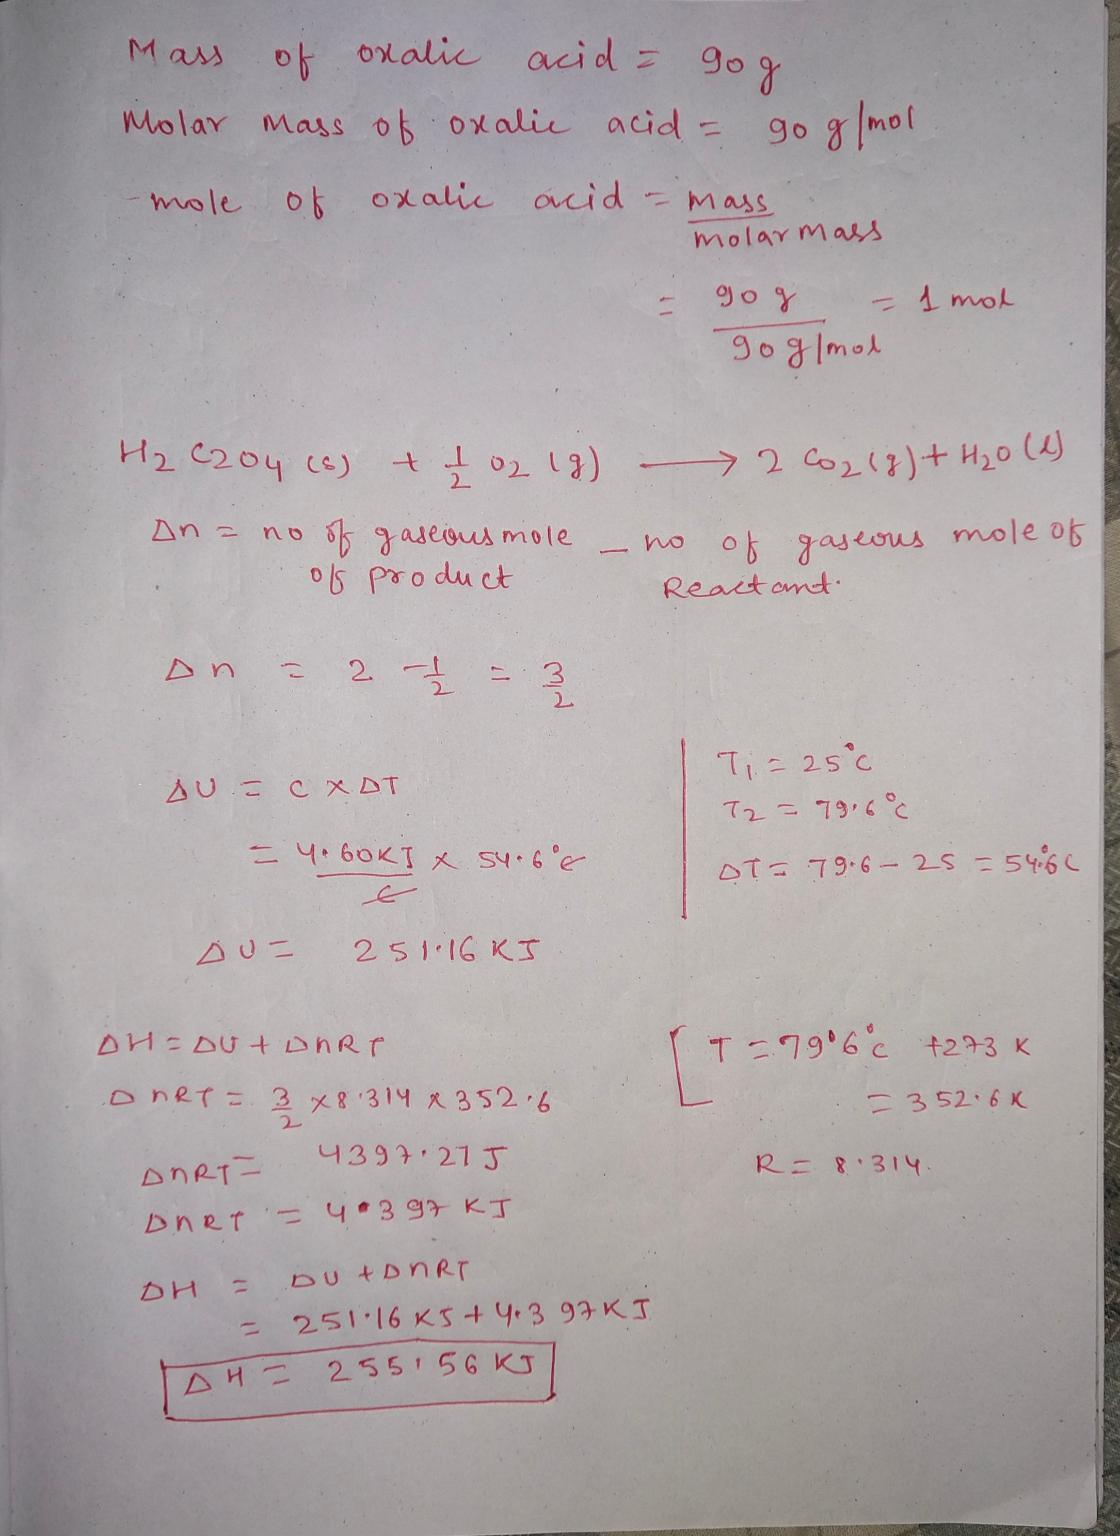 Mass of oxalic acid = 90 g
Molar mass of oxalic acid = 90 g/mol
mole of oxalic acid = mass
molar mass
= 90 g = 1 mol
90 g/mol
H2 C2O4 (s) + 1/2 O2 (g) → 2 CO2 (g) + H2O (l)
Δn = no of gaseous mole - no of gaseous mole of
of product Reactant.
Δn = 2 - 1/2 = 3/2
ΔU = C x ΔT
= 4.60KJ x 54.6°c
c
ΔU = 251.16 KJ
T1 = 25°C
T2 = 79.6°C
ΔT = 79.6 - 25 = 54.6°C
ΔH = ΔU + ΔnRT
ΔnRT = 3/2 x 8.314 x 352.6
ΔnRT = 4397.27 J
ΔnRT = 4.397 KJ
T = 79.6°c +273 K
= 352.6 K
R = 8.314.
ΔH = ΔU + ΔnRT
= 251.16 KJ + 4.397 KJ
ΔH = 255.56 KJ